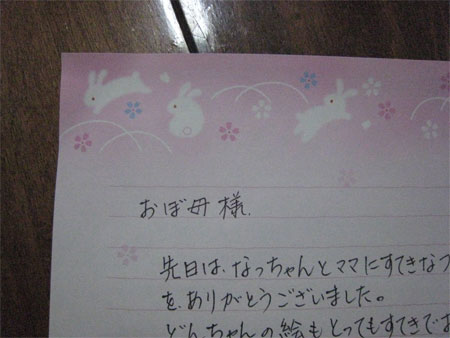 おぼ母様.
先日は、なっちゃんとママにすてきな
を、ありがとうございました。
どんちゃんの絵もとってもすてきで